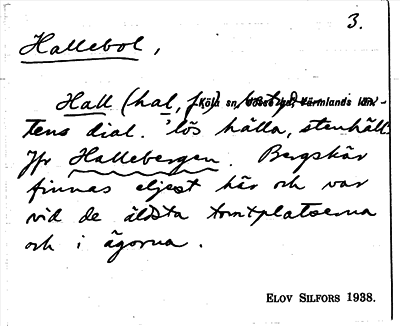 3.
Hallebol,
Hall (hal, f.) Köla sn, Jösse hd, Värmlands län
tens dial. 'lös hälla, stenhäll
Jfr Hallebergen. Bergskär
finnas eljest här och var
vid de äldsta tomtplatserna
och i ägorna.
ELOV SILFORS 1938.